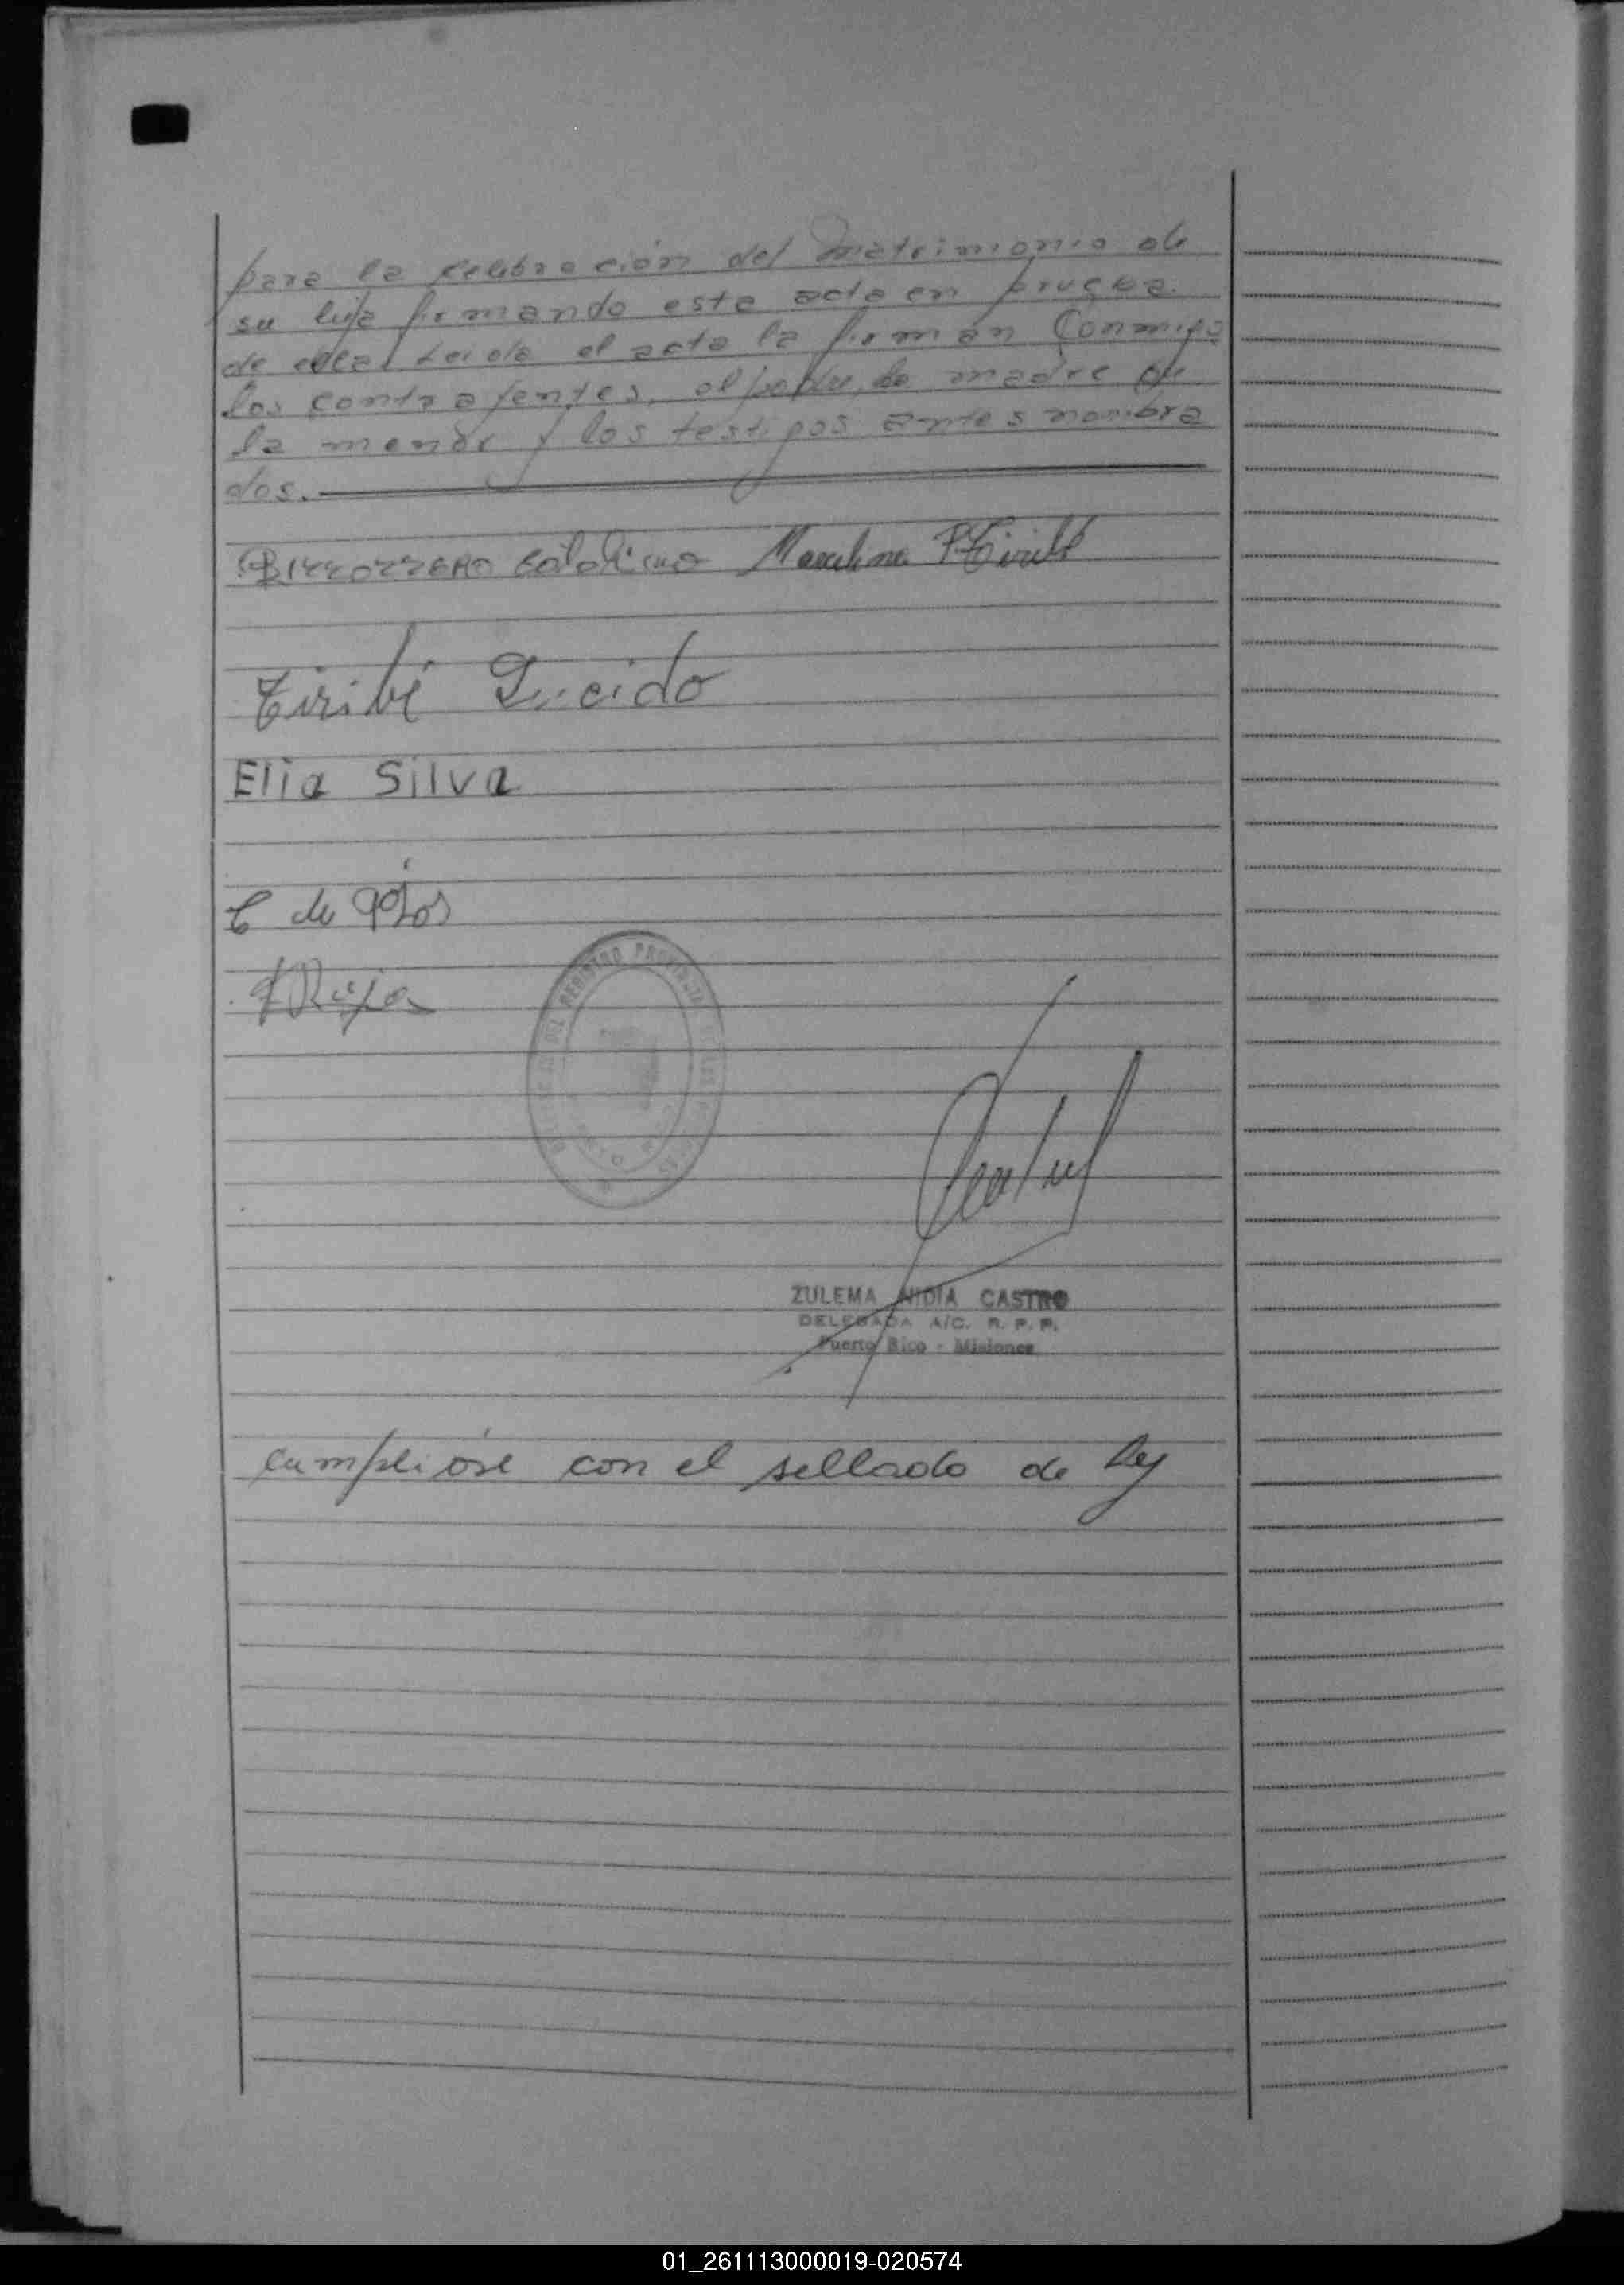 para la celebración del Matrimonio de
su hija firmando esta acta en prueva
de ella. Leida el acta la firman Conmigo
los contrayentes, el padre, la madre de
la menor y los testigos antes nombra
dos.
Marcelina Tiribé
Tiribé Lucido
Elia Silva
de
Rojas
DEL REGISTRO PROVINCIAL
ZULEMA NIDIA CASTRO
DELEGADA A/C. R. P. P.
Puerto Rico - Misiones
Cumplióse con el sellado de Ley
01_261113000019-020574